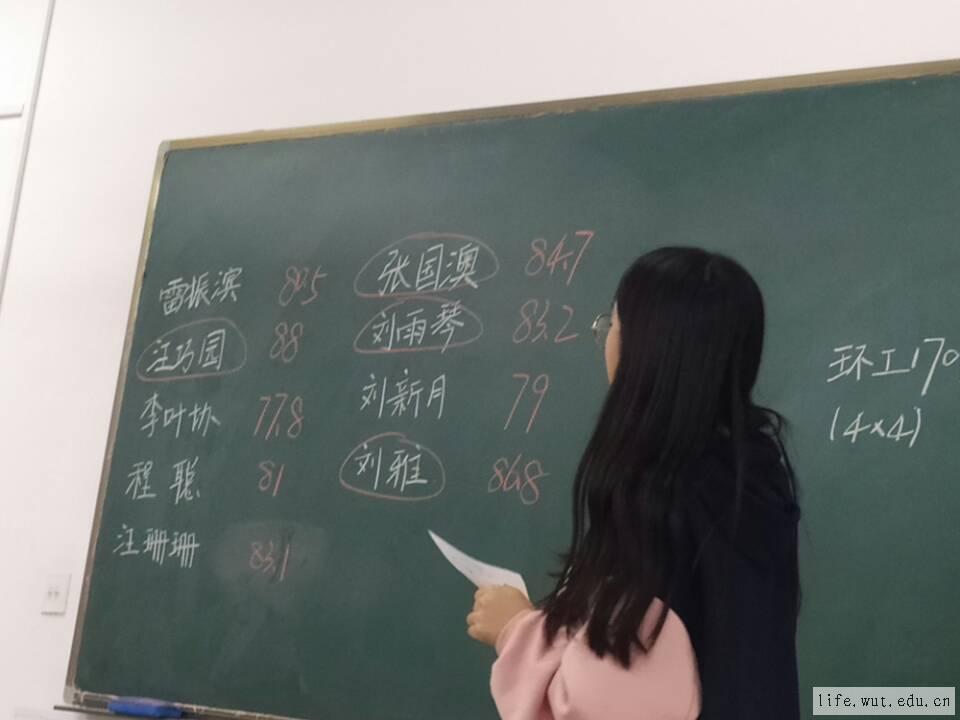 雷振滨 80.5
汪巧园 88
李叶协 77.8
程聪 81
汪珊珊 83.1
张国澳 84.7
刘雨琴 83.2
刘新月 79
刘雅 86.8
环工170
(4×4)
life.wut.edu.cn